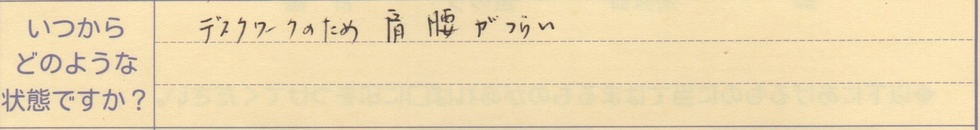 いつから
どのような
状態ですか？
デスクワークのため 肩 腰 がつらい